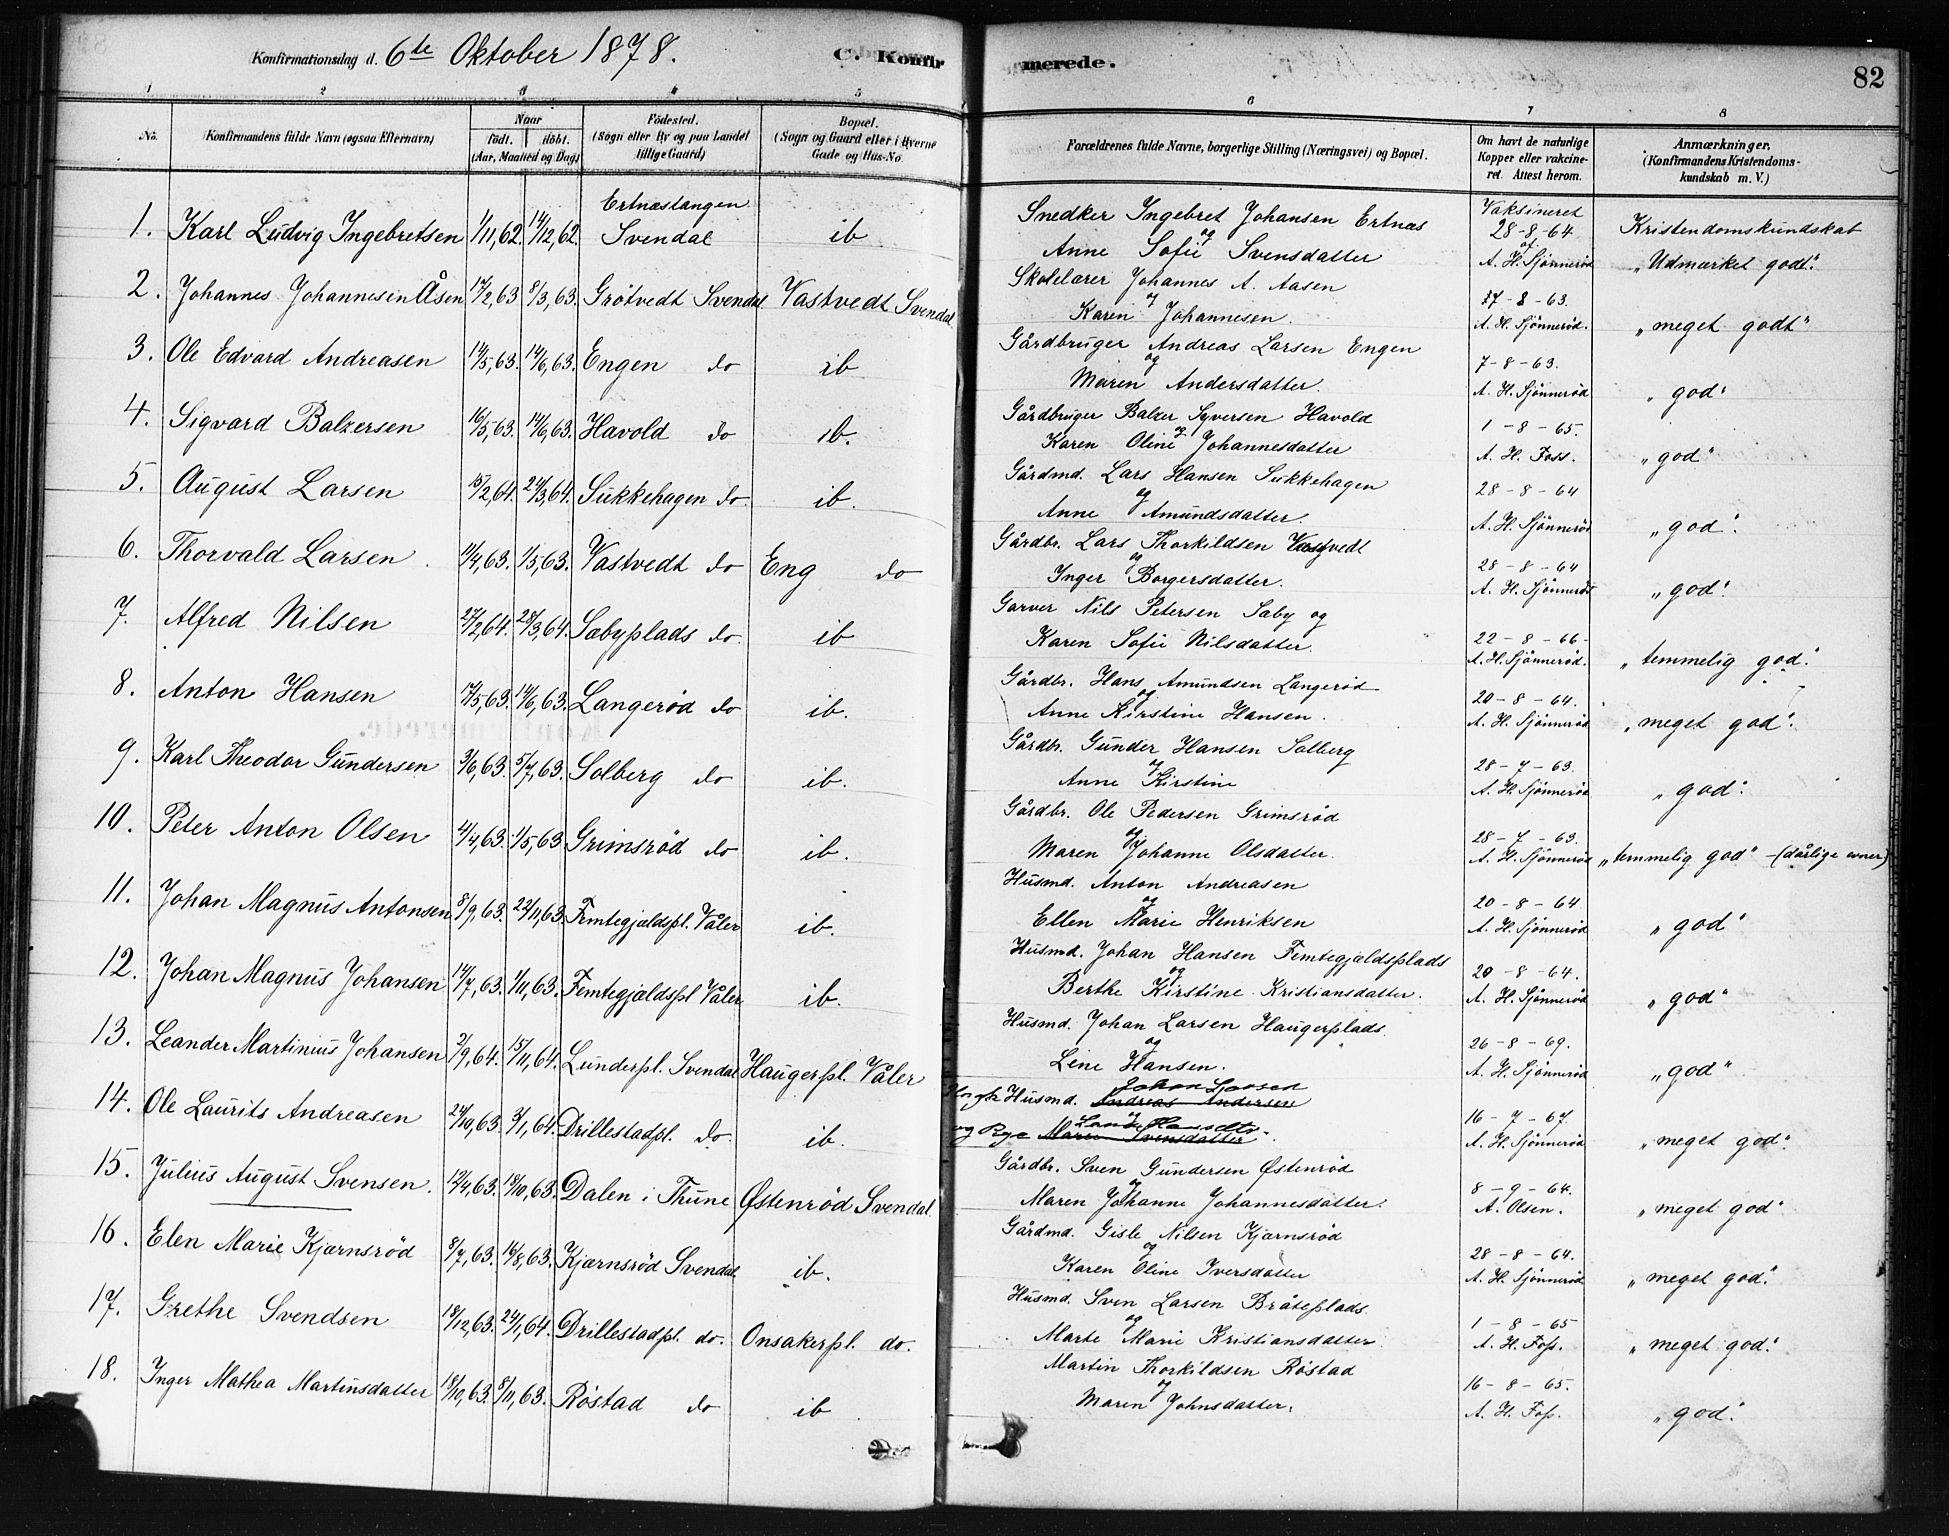 Konfirmationsdag d. 6te Oktober 1878. C. Konfirmerede. 82
1 2 3 4 5 6 7 8
No. Konfirmandens fulde Navn (ogsaa Efternavn) Naar født. døbt. (Aar, Maaned og Dag) Fødested. (Sogn eller By og paa Landet tillige Gaard) Bopæl. (Sogn og Gaard eller i Byerne Gade og Hus-No. Forældrenes fulde Navne, borgerlige Stilling (Næringsvei) og Bopæl. Om havt de naturlige Kopper eller vakcineret. Attest herom. Anmærkninger. (Konfirmandens Kristendomskundskab m. V.)
1. Karl Ludvig Ingebretsen 1/11,62. 14/12,62. Ertnæstangen Svendal ib Snedker Ingebret Johansen Ertnæs og Anne Sofie Svensdatter Vaksineret 28-8-64 af A. H. Sjönneröd Kristendomskundskab "Udmærket godt."
2. Johannes Johannesen Åsen 17/2,63 8/3,63. Grötvedt Svendal Vastvedt Svendal Skolelærer Johannes A. Aasen og Karen Johannesen. 17-8-63. A. H. Sjönneröd. "meget godt"
3. Ole Edvard Andreasen 14/5,63. 14/6,63. Engen do ib Gårdbruger Andreas Larsen Engen og Maren Andersdatter. 7-8-63. A. H. Sjönneröd "god"
4. Sigvard Balzersen 16/5,63. 14/6,63. Havold do ib. Gårdbruger Balzer Syversen Havold og Karen Oline Johannesdatter 1-8-65. A. H. Foss. "god"
5. August Larsen 15/2,64. 24/3,64. Sukkehagen do. ib. Gårdmd. Lars Hansen Sukkehagen og Anne Amundsdatter. 28-8-64 A. H. Sjönneröd "god".
6. Thorvald Larsen 11/4,63. 1/5,63. Vastvedt do Eng do Gårdbr. Lars Thorkildsen Vastvedt og Inger Borgersdatter. 28-8-64 A. H. Sjönneröd "god"
7. Alfred Nilsen 27/2,64. 28/3,64. Sabyplads do. ib Garver Nils Petersen Saby og Karen Sofie Nilsdatter. 22-8-66- A. H. Sjönneröd. "temmelig god".
8. Anton Hansen 17/5,63. 14/6,63. Langeröd do ib. Gårdbr. Hans Amundsen Langeröd og Anne Kirstine Hansen. 20-8-64. A. H. Sjönneröd "meget god".
9. Karl Theodor Gundersen 3/6,63. 5/7,63. Solberg do ib. Gårdbr. Gunder Hansen Solberg og Anne Kirstine 28-7-63. A. H. Sjönneröd "god".
10. Peter Anton Olsen 4/4,63. 1/5,63 Grimsröd do ib. Gårdbr. Ole Pedersen Grimsröd og Maren Johanne Olsdatter. 28-7-63. A. H. Sjönneröd "temmelig god" - (dårlige evner)
11. Johan Magnus Antonsen 8/9,63. 22/11,63. Femtegjældspl. Våler ib. Husmd. Anton Andreasen og Ellen Marie Henriksen 20-8-64 A. H. Sjönneröd "god"
12. Johan Magnus Johansen 14/7,63. 1/11,63. Femtegjældspl Våler ib. Husmd. Johan Hansen Femtegjældsplads og Berthe Kirstine Kristiansdatter. 20-8-64. A. H. Sjönneröd "god"
13. Leander Martinius Johansen 2/9,64. 15/11,64. Lunderpl. Svendal Haugerpl. Våler Husmd. Johan Larsen Haugerplads. og Line Hansen. 26-8-69. A. H. Sjönneröd "god"
14. Ole Laurits Andreasen 24/10,63. 3/1,64. Drillestadpl. do. ib. Husmd. Andreas Andersen og Maren Svensdatter 16-7-67. A. H. Sjönneröd "meget god."
15. Julius August Svensen. 12/4,63. 18/10,63. Dalen i Thune Østenröd Svendal. Gårdbr. Sven Gundersen Østenröd og Maren Johanne Johannesdatter. 8-9-64. A. Olsen. "meget god"
16. Elen Marie Kjærnsröd 8/7,63. 16/8,63. Kjærnsröd Svendal ib. Gårdmd. Gisle Nilsen Kjærnsröd og Karen Oline Iversdatter 28-8-64. A. H. Sjönneröd "meget god".
17. Grethe Svendsen 18/12,63. 24/1,64. Drillestadpl. do. Onsakerpl. do. Husmd. Sven Larsen Bråteplads. og Marte Marie Kristiansdatter. 1-8-65 A. H. Foss. "meget god."
18. Inger Mathea Martinsdatter 18/10,63. 8/11,63. Röstad do ib Martin Thorkildsen Röstad og Maren Johnsdatter. 16-8-65. A. H. Foss. "god".